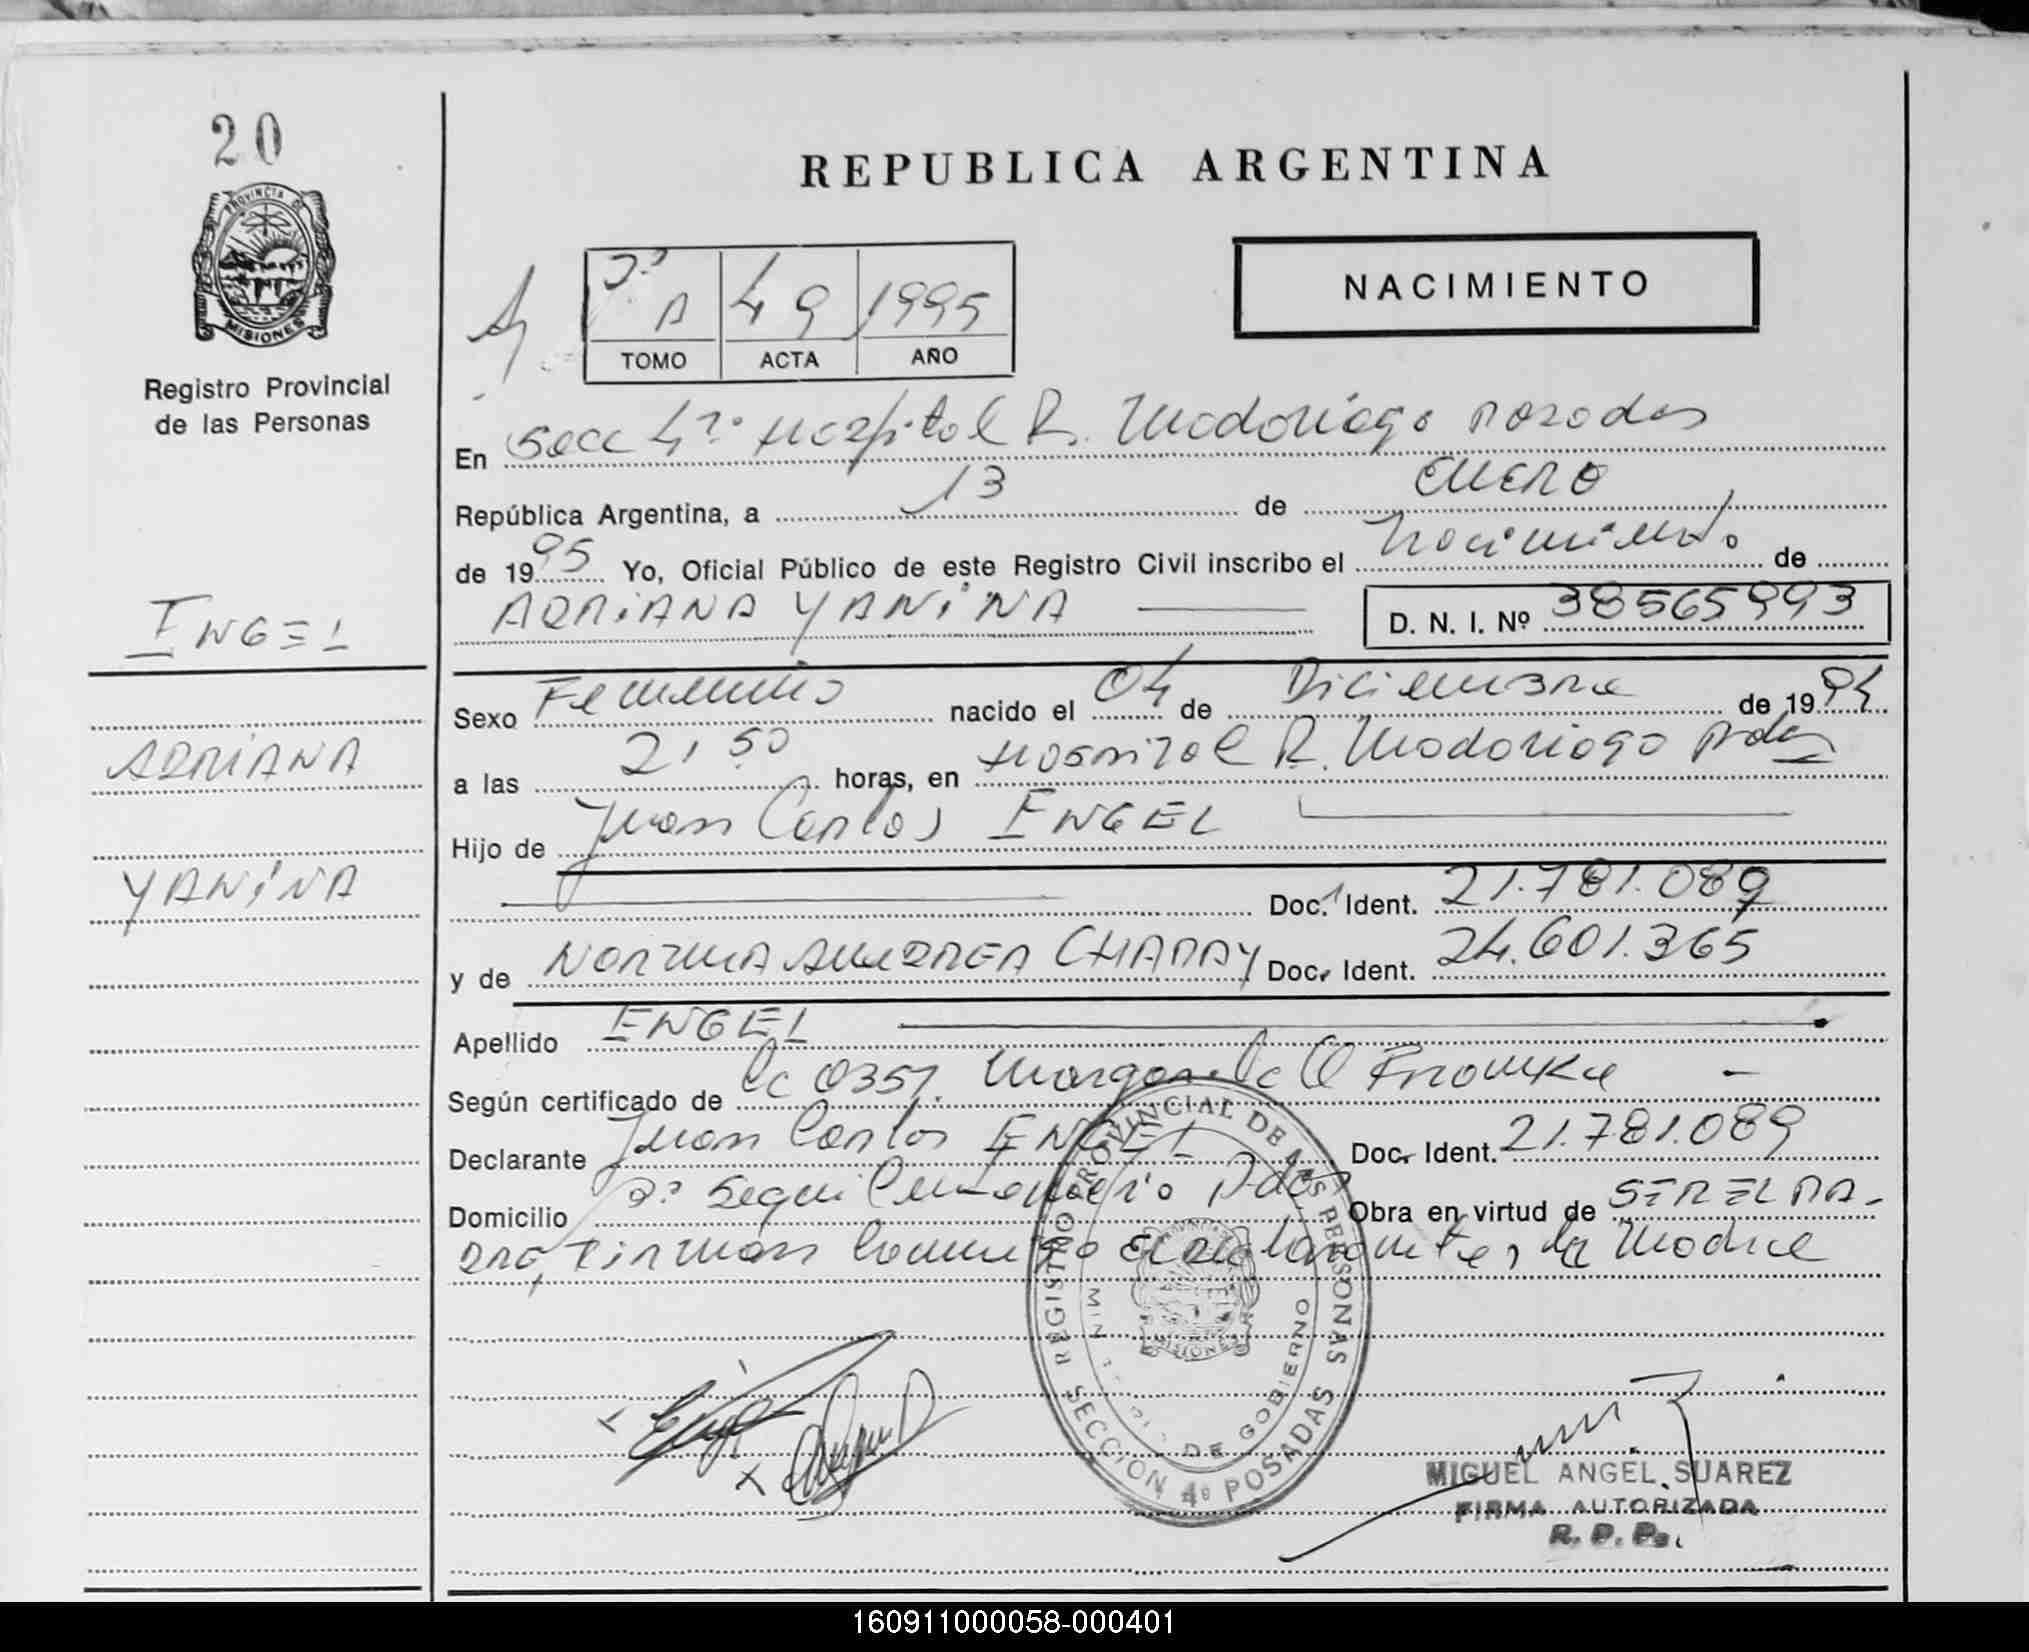 20
PROVINCIA DE
MISIONES
Registro Provincial
de las Personas
REPUBLICA ARGENTINA
NACIMIENTO
A 49 1995
TOMO ACTA AÑO
En Secc 4ta. Hospital R. Madariaga Posadas
República Argentina, a 13 de ENERO
de 1995 Yo, Oficial Público de este Registro Civil inscribo el Nacimiento de
ADRIANA YANINA D. N. I. Nº 38565993
ENGEL
Sexo Femenino nacido el 04 de Diciembre de 1994
a las 21 50 horas, en Hospital R. Madariaga Pdas
ADRIANA
Hijo de Juan Carlos ENGEL
YANINA
Doc. Ident. 21.781.089
y de NORMA ANDREA CHARAY Doc. Ident. 24.601.365
Apellido ENGEL
Según certificado de Lc 0351. Margarita Franke
Declarante Juan Carlos ENGEL Doc. Ident. 21.781.089
Domicilio Pdas Obra en virtud de SER EL PA-
DRE, Firman conmigo el declarante y la Madre
REGISTRO PROVINCIAL DE LAS PERSONAS
DE GOBIERNO
MISIONES
SECCION 4º POSADAS
MIGUEL ANGEL SUAREZ
FIRMA AUTORIZADA
R. P. Ps.
160911000058-000401